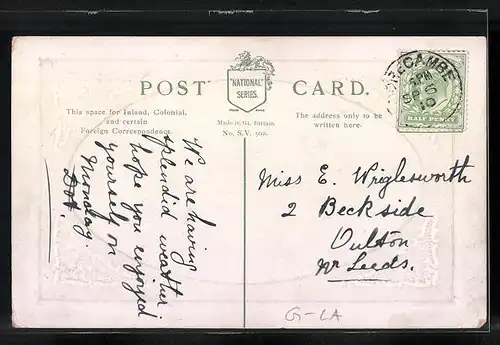 POST CARD.
"NATIONAL"
SERIES.
This space for Inland, Colonial,
and certain
Foreign Correspondence.
Made in Gt. Britain
No. S.V.
The address only to be
written here.
MORECAMBE
SP 6
10
HALF PENNY
We are having
splendid weather
hope you enjoyed
yourself on
Monday.
Miss E. Wriglesworth
2 Beckside
Oulton
nr Leeds.
G-LA